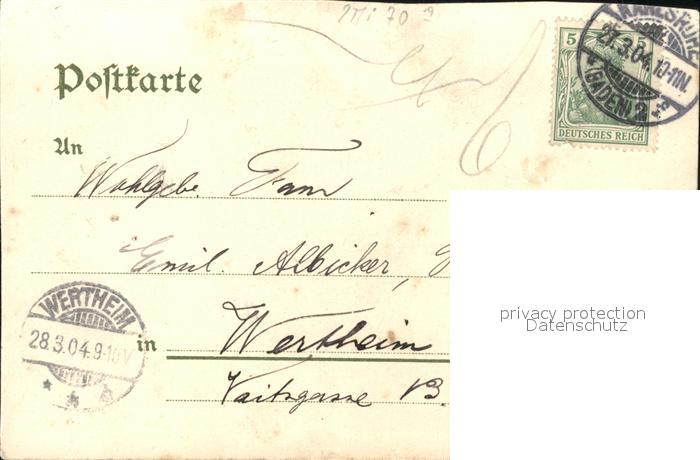 Mi 70
KARLSRUHE
27.3.04.10-11N.
(BADEN) 2
5 5
DEUTSCHES REICH
Postkarte
An
Wohlgeb.
Emil. Albicker,
WERTHEIM
28.3.04.9-10V
in Wertheim
privacy protection
Datenschutz